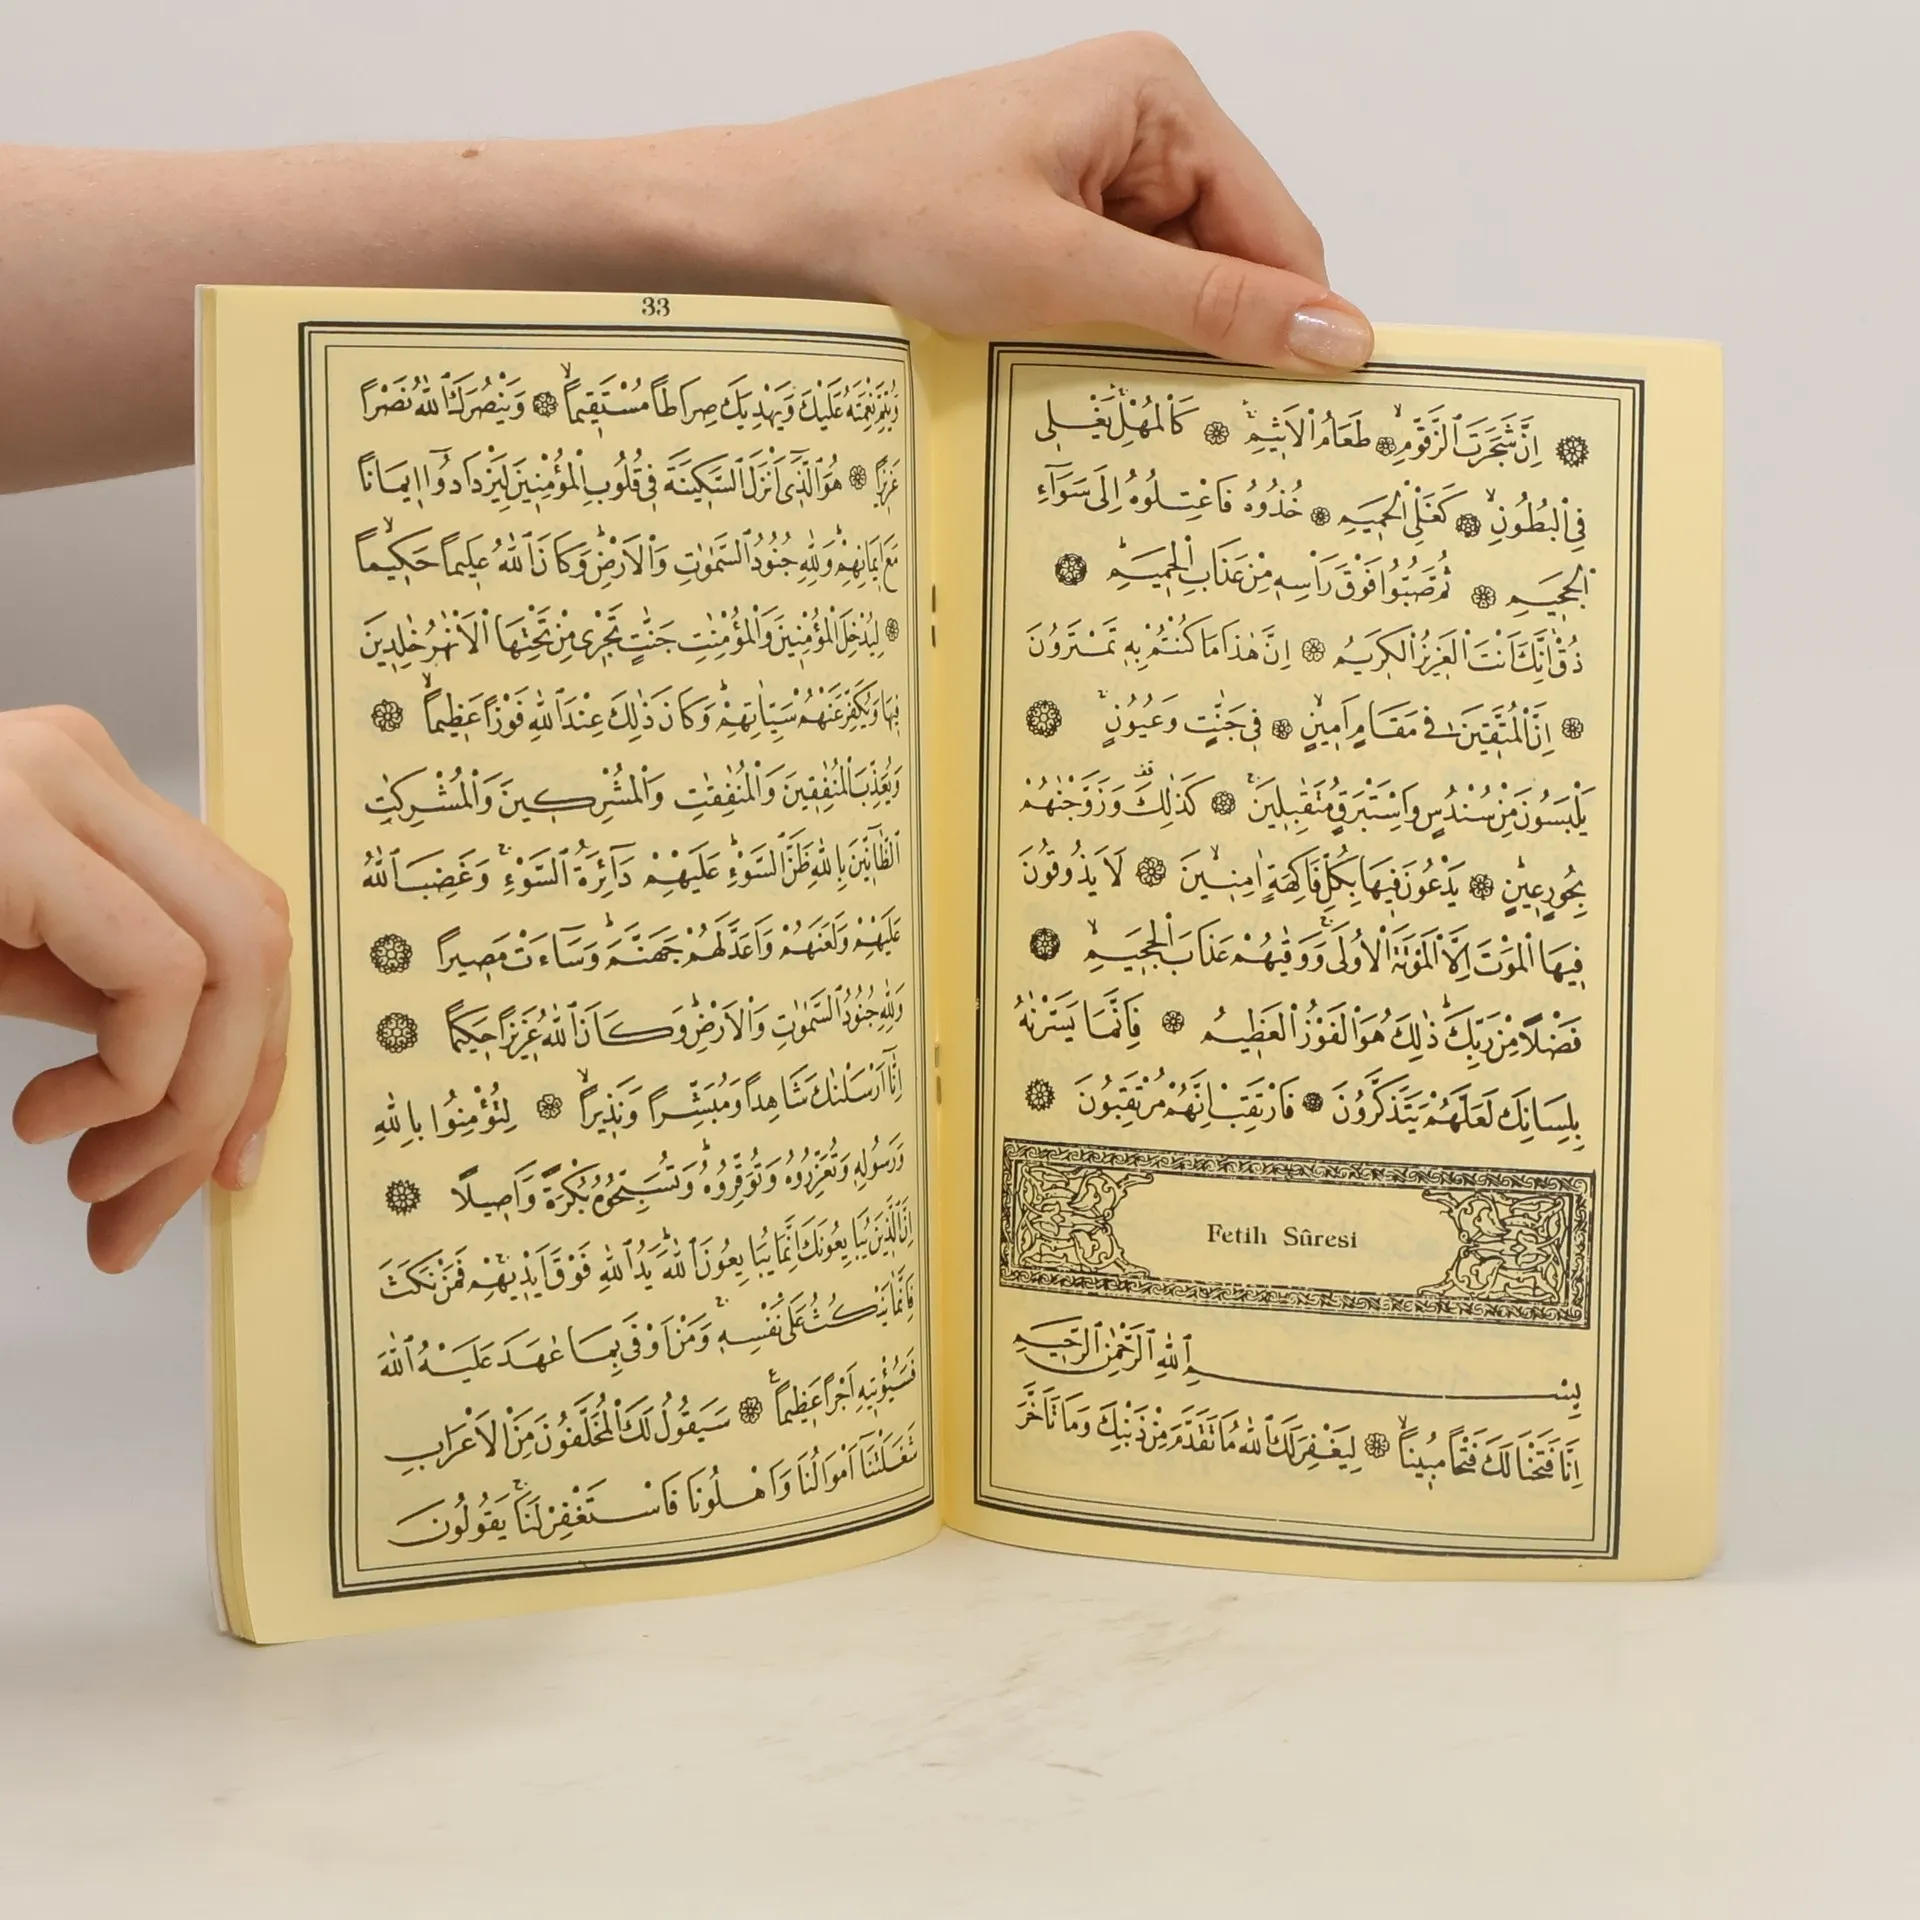 اِنَّ شَجَرَتَ الزَّقُّومِۙ طَعَامُ الْاَثِيمِۚ كَالْمُهْلِۚ يَغْلِى
فِى الْبُطُونِۙ كَغَلْىِ الْحَمِيمِ خُذُوهُ فَاعْتِلُوهُ اِلٰى سَوَآءِ
الْجَحِيمِ ثُمَّ صُبُّوا فَوْقَ رَاْسِهِ مِنْ عَذَابِ الْحَمِيمِۜ
ذُقْ اِنَّكَ اَنْتَ الْعَزِيزُ الْكَرِيمُ اِنَّ هٰذَا مَا كُنْتُمْ بِهِ تَمْتَرُونَ
اِنَّ الْمُتَّقِينَ فِى مَقَامٍ اَمِينٍۙ فِى جَنَّاتٍ وَعُيُونٍۚ
يَلْبَسُونَ مِنْ سُنْدُسٍ وَاِسْتَبْرَقٍ مُتَقَابِلِينَۚ كَذٰلِكَ وَزَوَّجْنَاهُمْ
بِحُورٍ عِينٍۜ يَدْعُونَ فِيهَا بِكُلِّ فَاكِهَةٍ اٰمِنِينَۙ لَا يَذُوقُونَ
فِيهَا الْمَوْتَ اِلَّا الْمَوْتَةَ الْاُولٰىۚ وَوَقٰيهُمْ عَذَابَ الْجَحِيمِۙ
فَضْلًا مِنْ رَبِّكَۜ ذٰلِكَ هُوَ الْفَوْزُ الْعَظِيمُ فَاِنَّمَا يَسَّرْنَاهُ
بِلِسَانِكَ لَعَلَّهُمْ يَتَذَكَّرُونَ فَارْتَقِبْ اِنَّهُمْ مُرْتَقِبُونَ
Fetih Sûresi
بِسْمِ اللّٰهِ الرَّحْمٰنِ الرَّحِيمِ
اِنَّا فَتَحْنَا لَكَ فَتْحًا مُبِينًاۙ لِيَغْفِرَ لَكَ اللّٰهُ مَا تَقَدَّمَ مِنْ ذَنْبِكَ وَمَا تَاَخَّرَ
33
وَيُتِمَّ نِعْمَتَهُ عَلَيْكَ وَيَهْدِيَكَ صِرَاطًا مُسْتَقِيمًاۙ وَيَنْصُرَكَ اللّٰهُ نَصْرًا
عَزِيزًا هُوَ الَّذِى اَنْزَلَ السَّكِينَةَ فِى قُلُوبِ الْمُؤْمِنِينَ لِيَزْدَادُوا اِيمَانًا
مَعَ اِيمَانِهِمْۜ وَلِلّٰهِ جُنُودُ السَّمٰوَاتِ وَالْاَرْضِۜ وَكَانَ اللّٰهُ عَلِيمًا حَكِيمًاۙ
لِيُدْخِلَ الْمُؤْمِنِينَ وَالْمُؤْمِنَاتِ جَنَّاتٍ تَجْرِى مِنْ تَحْتِهَا الْاَنْهَارُ خَالِدِينَ
فِيهَا وَيُكَفِّرَ عَنْهُمْ سَيِّاٰتِهِمْۜ وَكَانَ ذٰلِكَ عِنْدَ اللّٰهِ فَوْزًا عَظِيمًاۙ
وَيُعَذِّبَ الْمُنَافِقِينَ وَالْمُنَافِقَاتِ وَالْمُشْرِكِينَ وَالْمُشْرِكَاتِ
الظَّٓانِّينَ بِاللّٰهِ ظَنَّ السَّوْءِۜ عَلَيْهِمْ دَٓائِرَةُ السَّوْءِۚ وَغَضِبَ اللّٰهُ
عَلَيْهِمْ وَلَعَنَهُمْ وَاَعَدَّ لَهُمْ جَهَنَّمَۜ وَسَٓاءَتْ مَصِيرًا
وَلِلّٰهِ جُنُودُ السَّمٰوَاتِ وَالْاَرْضِۜ وَكَانَ اللّٰهُ عَزِيزًا حَكِيمًا
اِنَّٓا اَرْسَلْنَاكَ شَاهِدًا وَمُبَشِّرًا وَنَذِيرًاۙ لِتُؤْمِنُوا بِاللّٰهِ
وَرَسُولِهِ وَتُعَزِّرُوهُ وَتُوَقِّرُوهُۜ وَتُسَبِّحُوهُ بُكْرَةً وَاَصِيلًا
اِنَّ الَّذِينَ يُبَايِعُونَكَ اِنَّمَا يُبَايِعُونَ اللّٰهَۜ يَدُ اللّٰهِ فَوْقَ اَيْدِيهِمْۚ فَمَنْ نَكَثَ
فَاِنَّمَا يَنْكُثُ عَلٰى نَفْسِهِۚ وَمَنْ اَوْفٰى بِمَا عَاهَدَ عَلَيْهُ اللّٰهَ
فَسَيُؤْتِيهِ اَجْرًا عَظِيمًا سَيَقُولُ لَكَ الْمُخَلَّفُونَ مِنَ الْاَعْرَابِ
شَغَلَتْنَٓا اَمْوَالُنَا وَاَهْلُونَا فَاسْتَغْفِرْ لَنَاۚ يَقُولُونَ